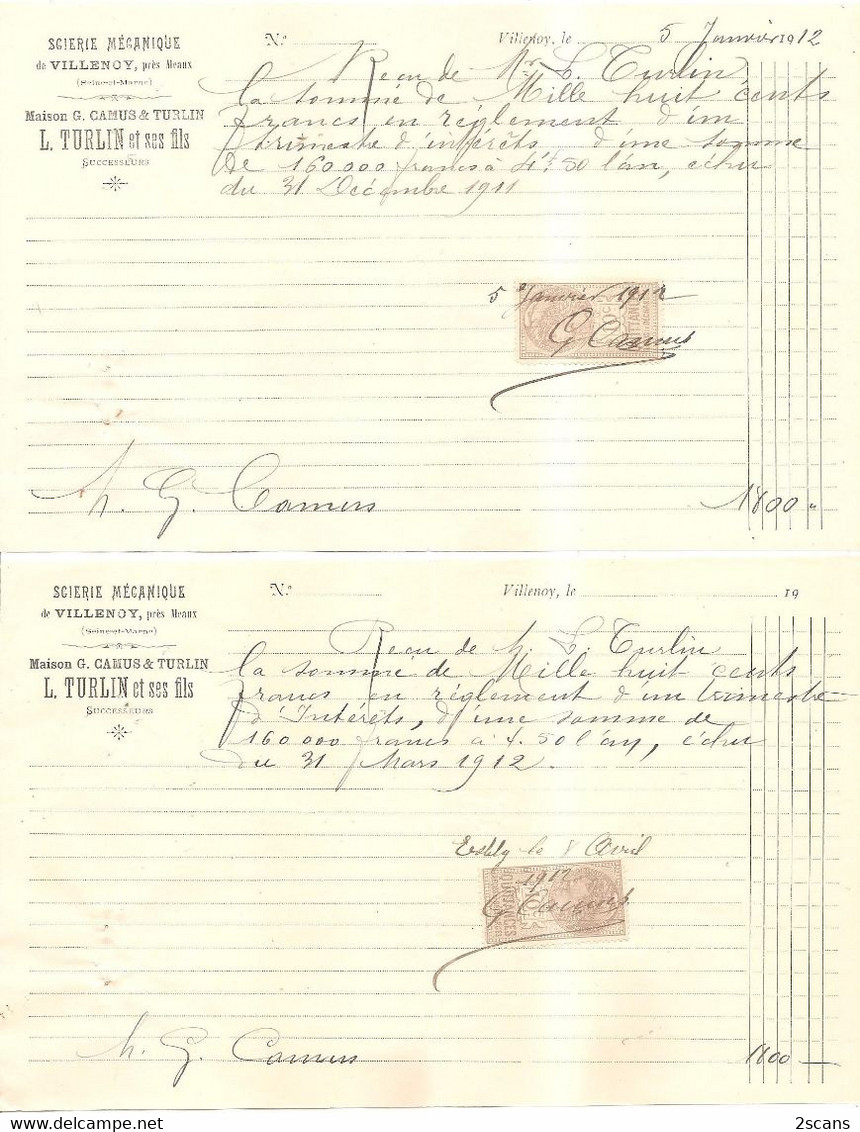 SCIERIE MÉCANIQUE
de VILLENOY, près Meaux
(Seine-et-Marne)
Maison G. CAMUS & TURLIN
L. TURLIN et ses fils
SUCCESSEURS
N° Villenoy, le 5 Janvier 1912
Reçu de Mr L. Turlin
la somme de Mille huit cents
francs en règlement d'un
trimestre d'intérêts d'une somme
de 160.000 francs à 4f 50 l'an, échu
du 31 Décembre 1911
5 Janvier 1912
G Camus
M. G. Camus 1800 "
SCIERIE MÉCANIQUE
de VILLENOY, près Meaux
(Seine-et-Marne)
Maison G. CAMUS & TURLIN
L. TURLIN et ses fils
SUCCESSEURS
N° Villenoy, le 19
Reçu de M. L. Turlin
la somme de Mille huit cents
francs en règlement d'un trimestre
d'Intérêts, d'une somme de
160.000 francs à 4.50 l'an, échu
du 31 Mars 1912.
le 8 Avril
1912
G Camus
M. G. Camus 1800 —
2scans